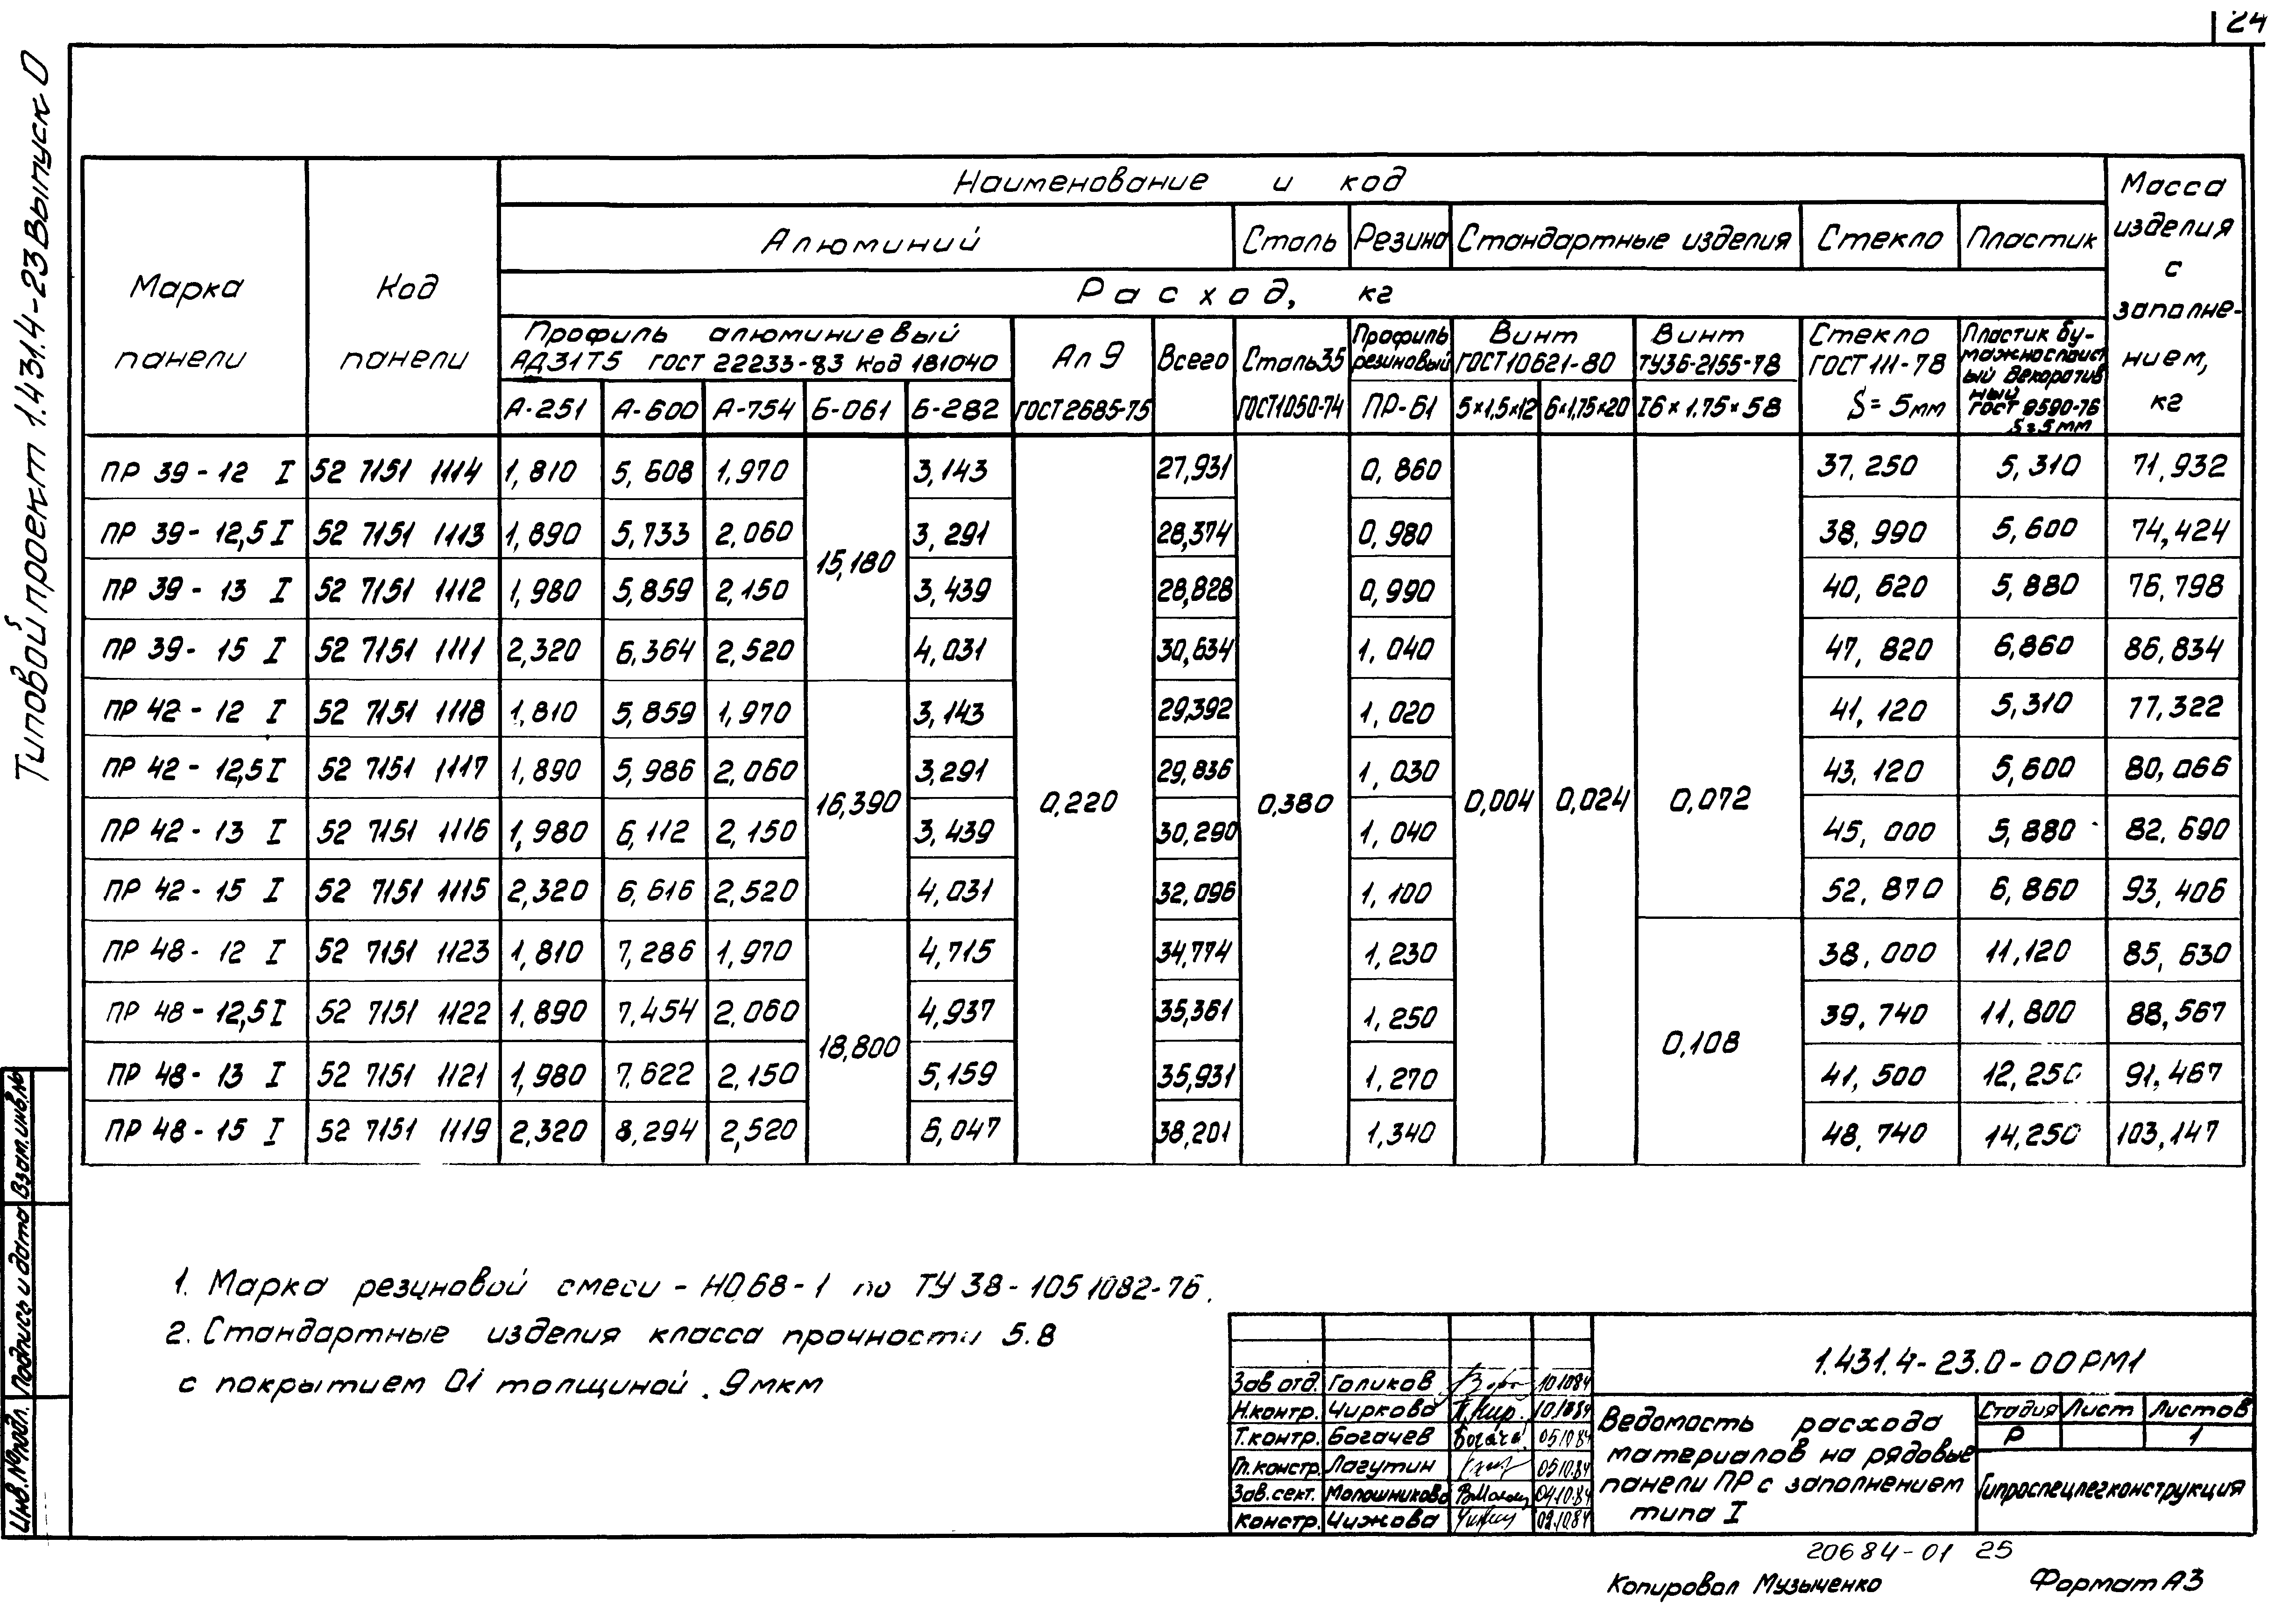 24
Типовой проект 1.431.4-23 Выпуск 0
Марка панели
Код панели
Наименование и код
Масса изделия с заполнением, кг
Алюминий Сталь Резина Стандартные изделия Стекло Пластик
Расход, кг
Профиль алюминиевый АД31Т5 ГОСТ 22233-83 Код 181040
Ал 9 ГОСТ 2685-75
Всего
Сталь35 ГОСТ1050-74
Профиль резиновый ПР-61
Винт ГОСТ10621-80
Винт ТУ36-2155-78
Стекло ГОСТ 111-78 S = 5мм
Пластик бумажнослоистый декоративный ГОСТ 9590-76 S=5мм
А-251 А-600 А-754 Б-061 Б-282 5×1,5×12 6×1,75×20 16×1,75×58
ПР 39-12 I 52 7151 1114 1,810 5,608 1,970 3,143 27,931 0,860 37,250 5,310 71,932
ПР 39-12,5 I 52 7151 1113 1,890 5,733 2,060 3,291 28,374 0,980 38,990 5,600 74,424
15,180
ПР 39-13 I 52 7151 1112 1,980 5,859 2,150 3,439 28,828 0,990 40,620 5,880 76,798
ПР 39-15 I 52 7151 1111 2,320 6,364 2,520 4,031 30,634 1,040 47,820 6,860 86,834
ПР 42-12 I 52 7151 1118 1,810 5,859 1,970 3,143 29,392 1,020 41,120 5,310 77,322
ПР 42-12,5 I 52 7151 1117 1,890 5,986 2,060 3,291 29,836 1,030 43,120 5,600 80,066
16,390 0,220 0,380 0,004 0,024 0,072
ПР 42-13 I 52 7151 1116 1,980 6,112 2,150 3,439 30,290 1,040 45,000 5,880 82,690
ПР 42-15 I 52 7151 1115 2,320 6,616 2,520 4,031 32,096 1,100 52,870 6,860 93,406
ПР 48-12 I 52 7151 1123 1,810 7,286 1,970 4,715 34,774 1,230 38,000 11,120 85,630
ПР 48-12,5 I 52 7151 1122 1,890 7,454 2,060 4,937 35,361 1,250 39,740 11,800 88,567
18,800 0,108
ПР 48-13 I 52 7151 1121 1,980 7,622 2,150 5,159 35,931 1,270 41,500 12,250 91,467
ПР 48-15 I 52 7151 1119 2,320 8,294 2,520 6,047 38,201 1,340 48,740 14,250 103,147
1. Марка резиновой смеси - НО68-1 по ТУ 38-1051082-76.
2. Стандартные изделия класса прочности 5.8
с покрытием 01 толщиной 9мкм
Взам.инв.№
Подпись и дата
Инв.№подл.
1.431.4-23.0-00РМ1
Зав.отд. Голиков 10.10.84
Н.контр. Чиркова 10.10.84
Т.контр. Богачев 05.10.84
Гл.констр. Лагутин 05.10.84
Зав.сект. Молошникова 04.10.84
Констр. Чижова 02.10.84
Ведомость расхода
материалов на рядовые
панели ПР с заполнением
типа I
Стадия Лист Листов
Р 1
Гипроспецлегконструкция
20684-01 25
Копировал Музыченко Формат А3